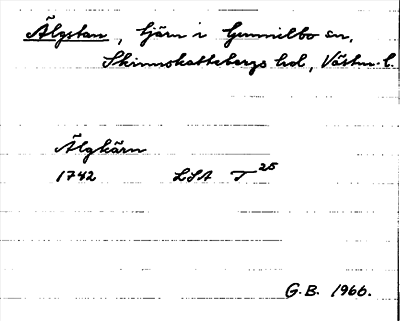 Älgstan, tjärn i Gunnilbo sn,
Skinnskattebergs hd, Västm. l.
Älgkärn
1742 LSA T 25
G.B. 1966.